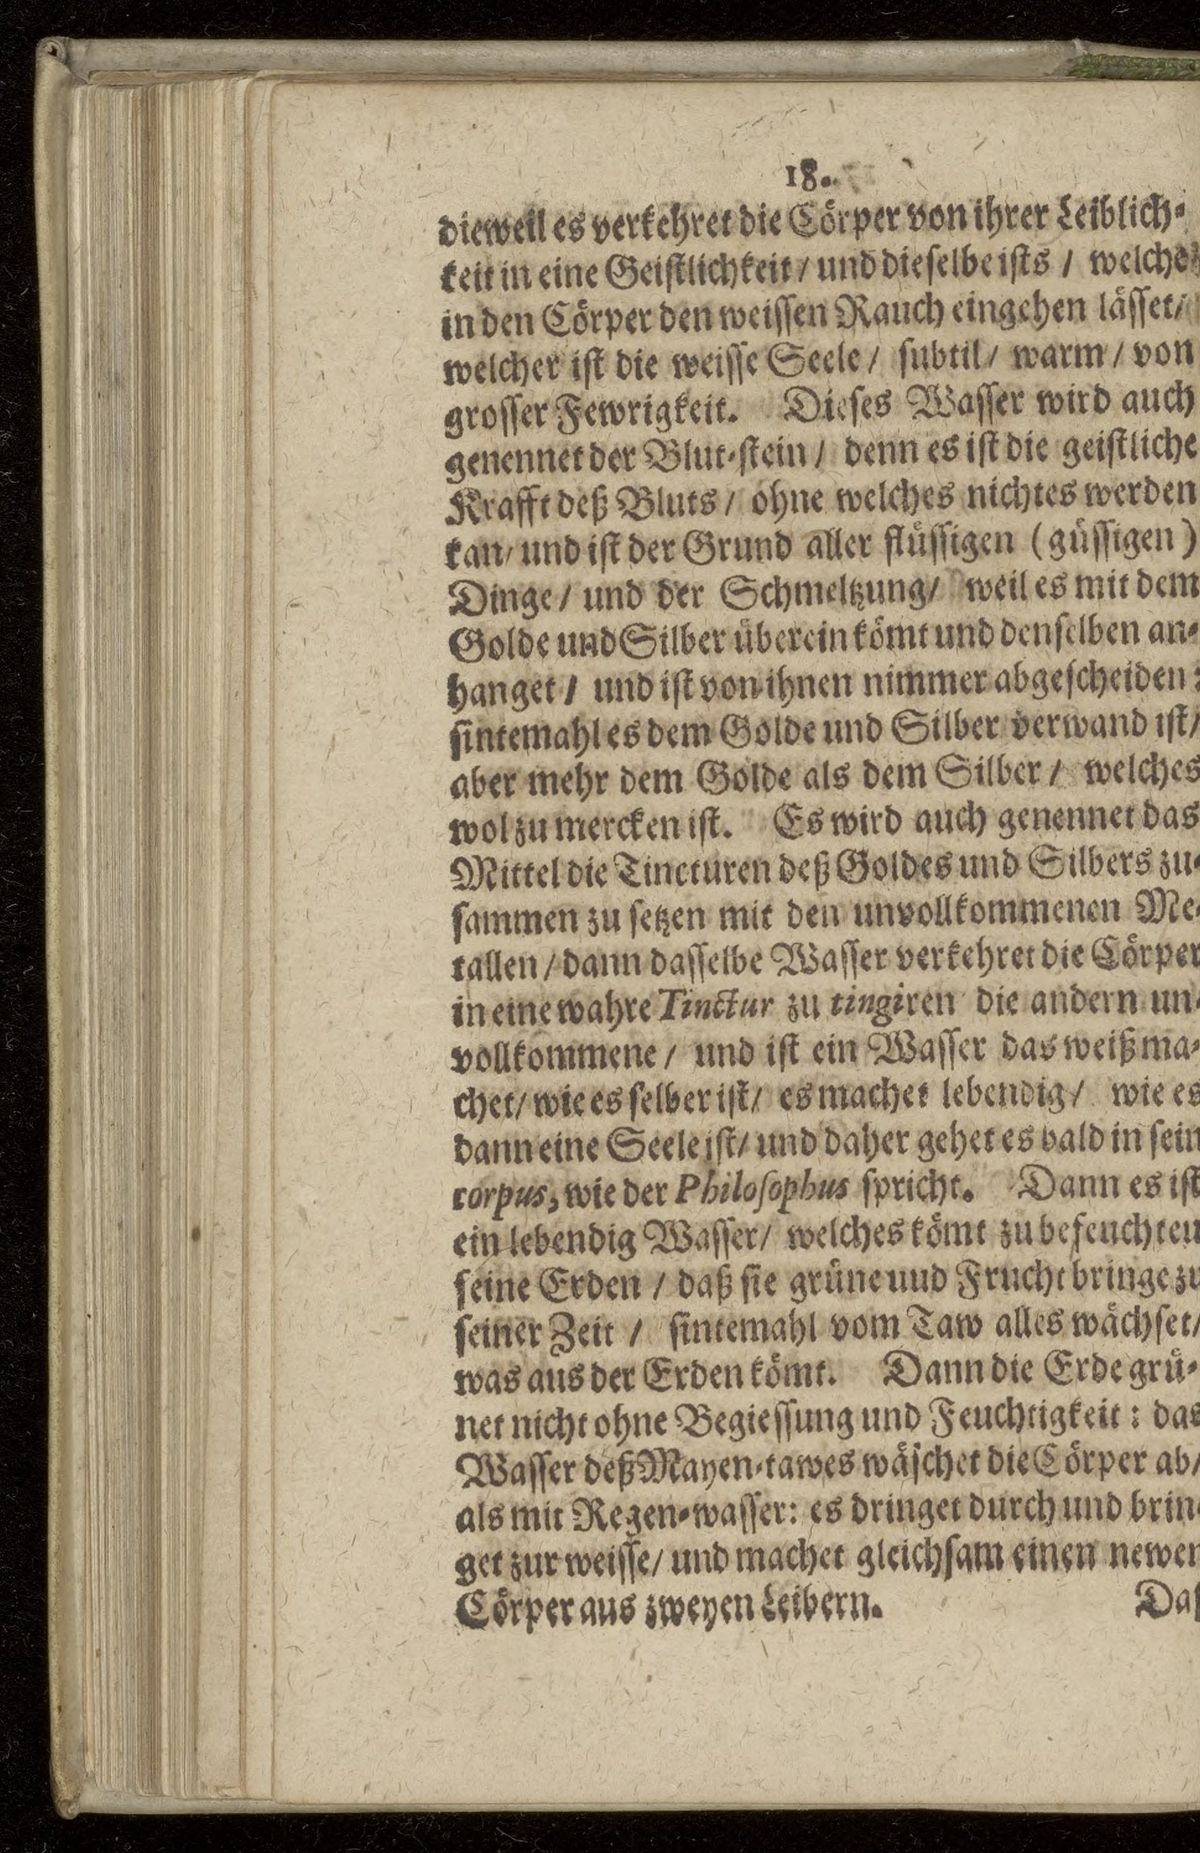 18.
dieweil es verkehret die Cörper von ihrer Leiblich-
keit in eine Geistlichkeit / und dieselbe ists / welche
in den Cörper den weissen Rauch eingehen lässet /
welcher ist die weisse Seele / subtil / warm / von
grosser Fewrigkeit. Dieses Wasser wird auch
genennet der Blut-stein / denn es ist die geistliche
Krafft deß Bluts / ohne welches nichtes werden
kan / und ist der Grund aller flüssigen (güssigen)
Dinge / und der Schmeltzung / weil es mit dem
Golde und Silber überein kömt und denselben an-
hanget / und ist von ihnen nimmer abgescheiden:
sintemahl es dem Golde und Silber verwand ist /
aber mehr dem Golde als dem Silber / welches
wol zu mercken ist. Es wird auch genennet das
Mittel die Tincturen deß Goldes und Silbers zu-
sammen zu setzen mit den unvollkommenen Me-
tallen / dann dasselbe Wasser verkehret die Cörper
in eine wahre Tinctur zu tingiren die andern un-
vollkommene / und ist ein Wasser das weiß ma-
chet / wie es selber ist / es machet lebendig / wie es
dann eine Seele ist / und daher gehet es bald in sein
corpus, wie der Philosophus spricht. Dann es ist
ein lebendig Wasser / welches kömt zu befeuchteu
seine Erden / daß sie grüne uud Frucht bringe zu
seiner Zeit / sintemahl vom Taw alles wächset /
was aus der Erden kömt. Dann die Erde grü-
net nicht ohne Begiessung und Feuchtigkeit: das
Wasser deß Mayen-tawes wäschet die Cörper ab /
als mit Regen-wasser: es dringet durch und brin-
get zur weisse / und machet gleichsam einen newen
Cörper aus zweyen Leibern.
Das